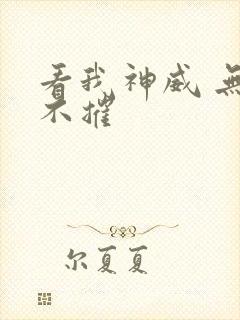 看我神威 無
不摧
尔夏夏